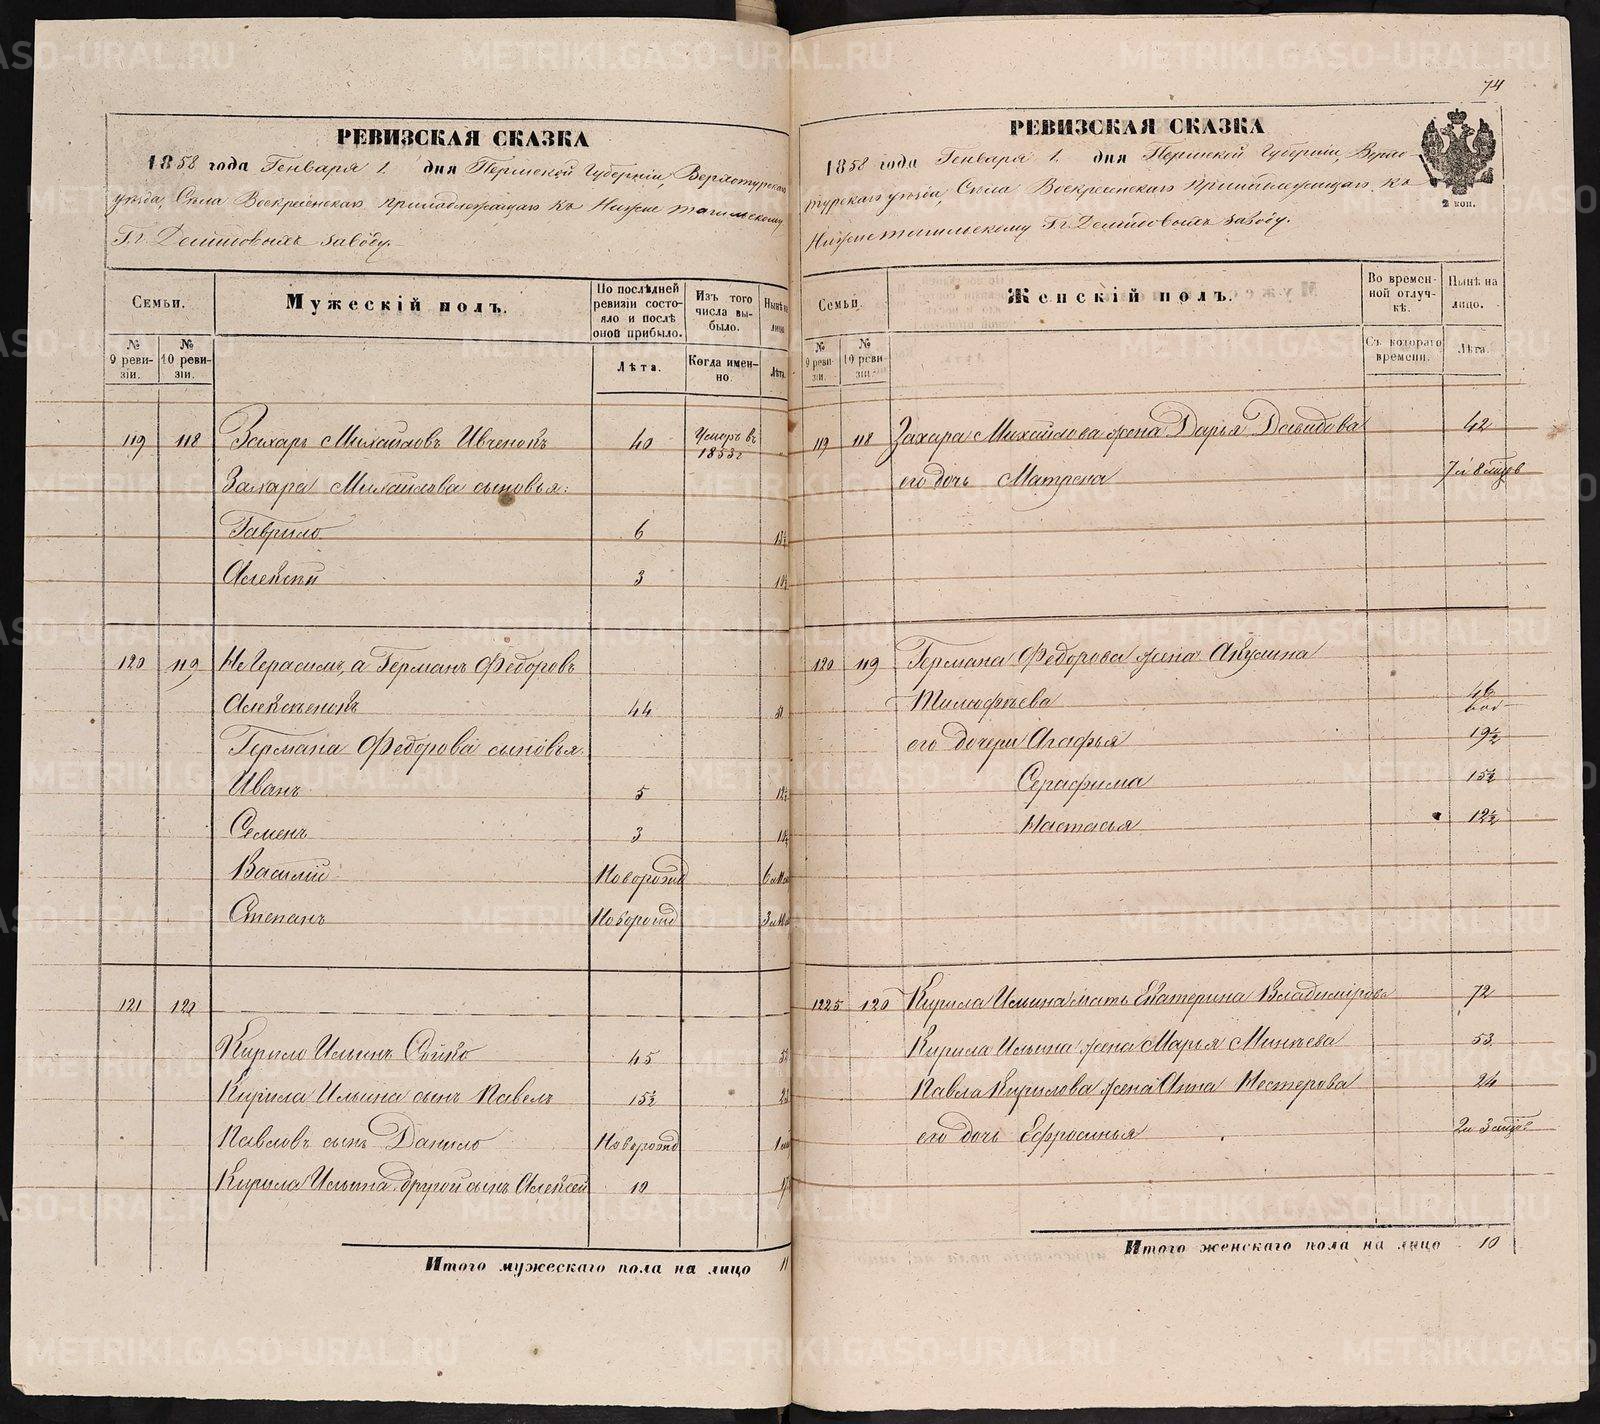 74
РЕВИЗСКАЯ СКАЗКА
1858 года Генваря 1. дня Пермской Губерніи, Верхотурскаго
уѣзда, Села Воскресенскаго принадлежащаго къ Нижнетагильскому
Г.г. Демидовыхъ заводу.
Семьи.
Мужескій полъ.
По послѣдней ревизіи состояло и послѣ оной прибыло.
Изъ того числа выбыло.
Нынѣ на лицо
№ 9 ревизіи.
№ 10 ревизіи.
Лѣта.
Когда именно.
Лѣта.
119 118 Захаръ Михайловъ Ивченокъ 40 Умеръ въ 1853 г
Захара Михайлова сыновья:
Гаврило 6
Алексѣй 3
120 119 Не Герасимъ, а Германъ Федоровъ
Алексѣенокъ 44
Германа Федорова сыновья:
Иванъ 5
Семенъ 3
Василій Новорожд
Степанъ Новорожд
121 120
Кирило Ильинъ Сойко 45
Кирила Ильина сынъ Павелъ 15½
Павловъ сынъ Данило Новорожд
Кирила Ильина другой сынъ Алексѣй 10
Итого мужескаго пола на лицо 11
РЕВИЗСКАЯ СКАЗКА
1858 года Генваря 1. дня Пермской Губерніи, Верхо-
турскаго уѣзда, Села Воскресенскаго принадлежащаго къ
Нижнетагильскому Г.г. Демидовыхъ заводу.
2 коп.
Семьи.
Женскій полъ.
Во временной отлучкѣ.
Нынѣ на лицо.
№ 9 ревизіи.
№ 10 ревизіи.
Съ котораго времени.
Лѣта.
119 118 Захара Михайлова жена Дарья Давидова 42
его дочь Матрена 7 и 8 мцѣв
120 119 Германа Федорова жена Акулина
Тимофѣева 46
его дочери Агафья 19½
Серафима 15½
Настасья 12½
1225 120 Кирила Ильина мать Екатерина Владимірова 72
Кирила Ильина жена Марья Минѣева 53
Павла Кирилова жена Анна Нестерова 24
его дочь Ефросинья 2 и 3 мцѣв
Итого женскаго пола на лицо 10
METRIKI.GASO-URAL.RU